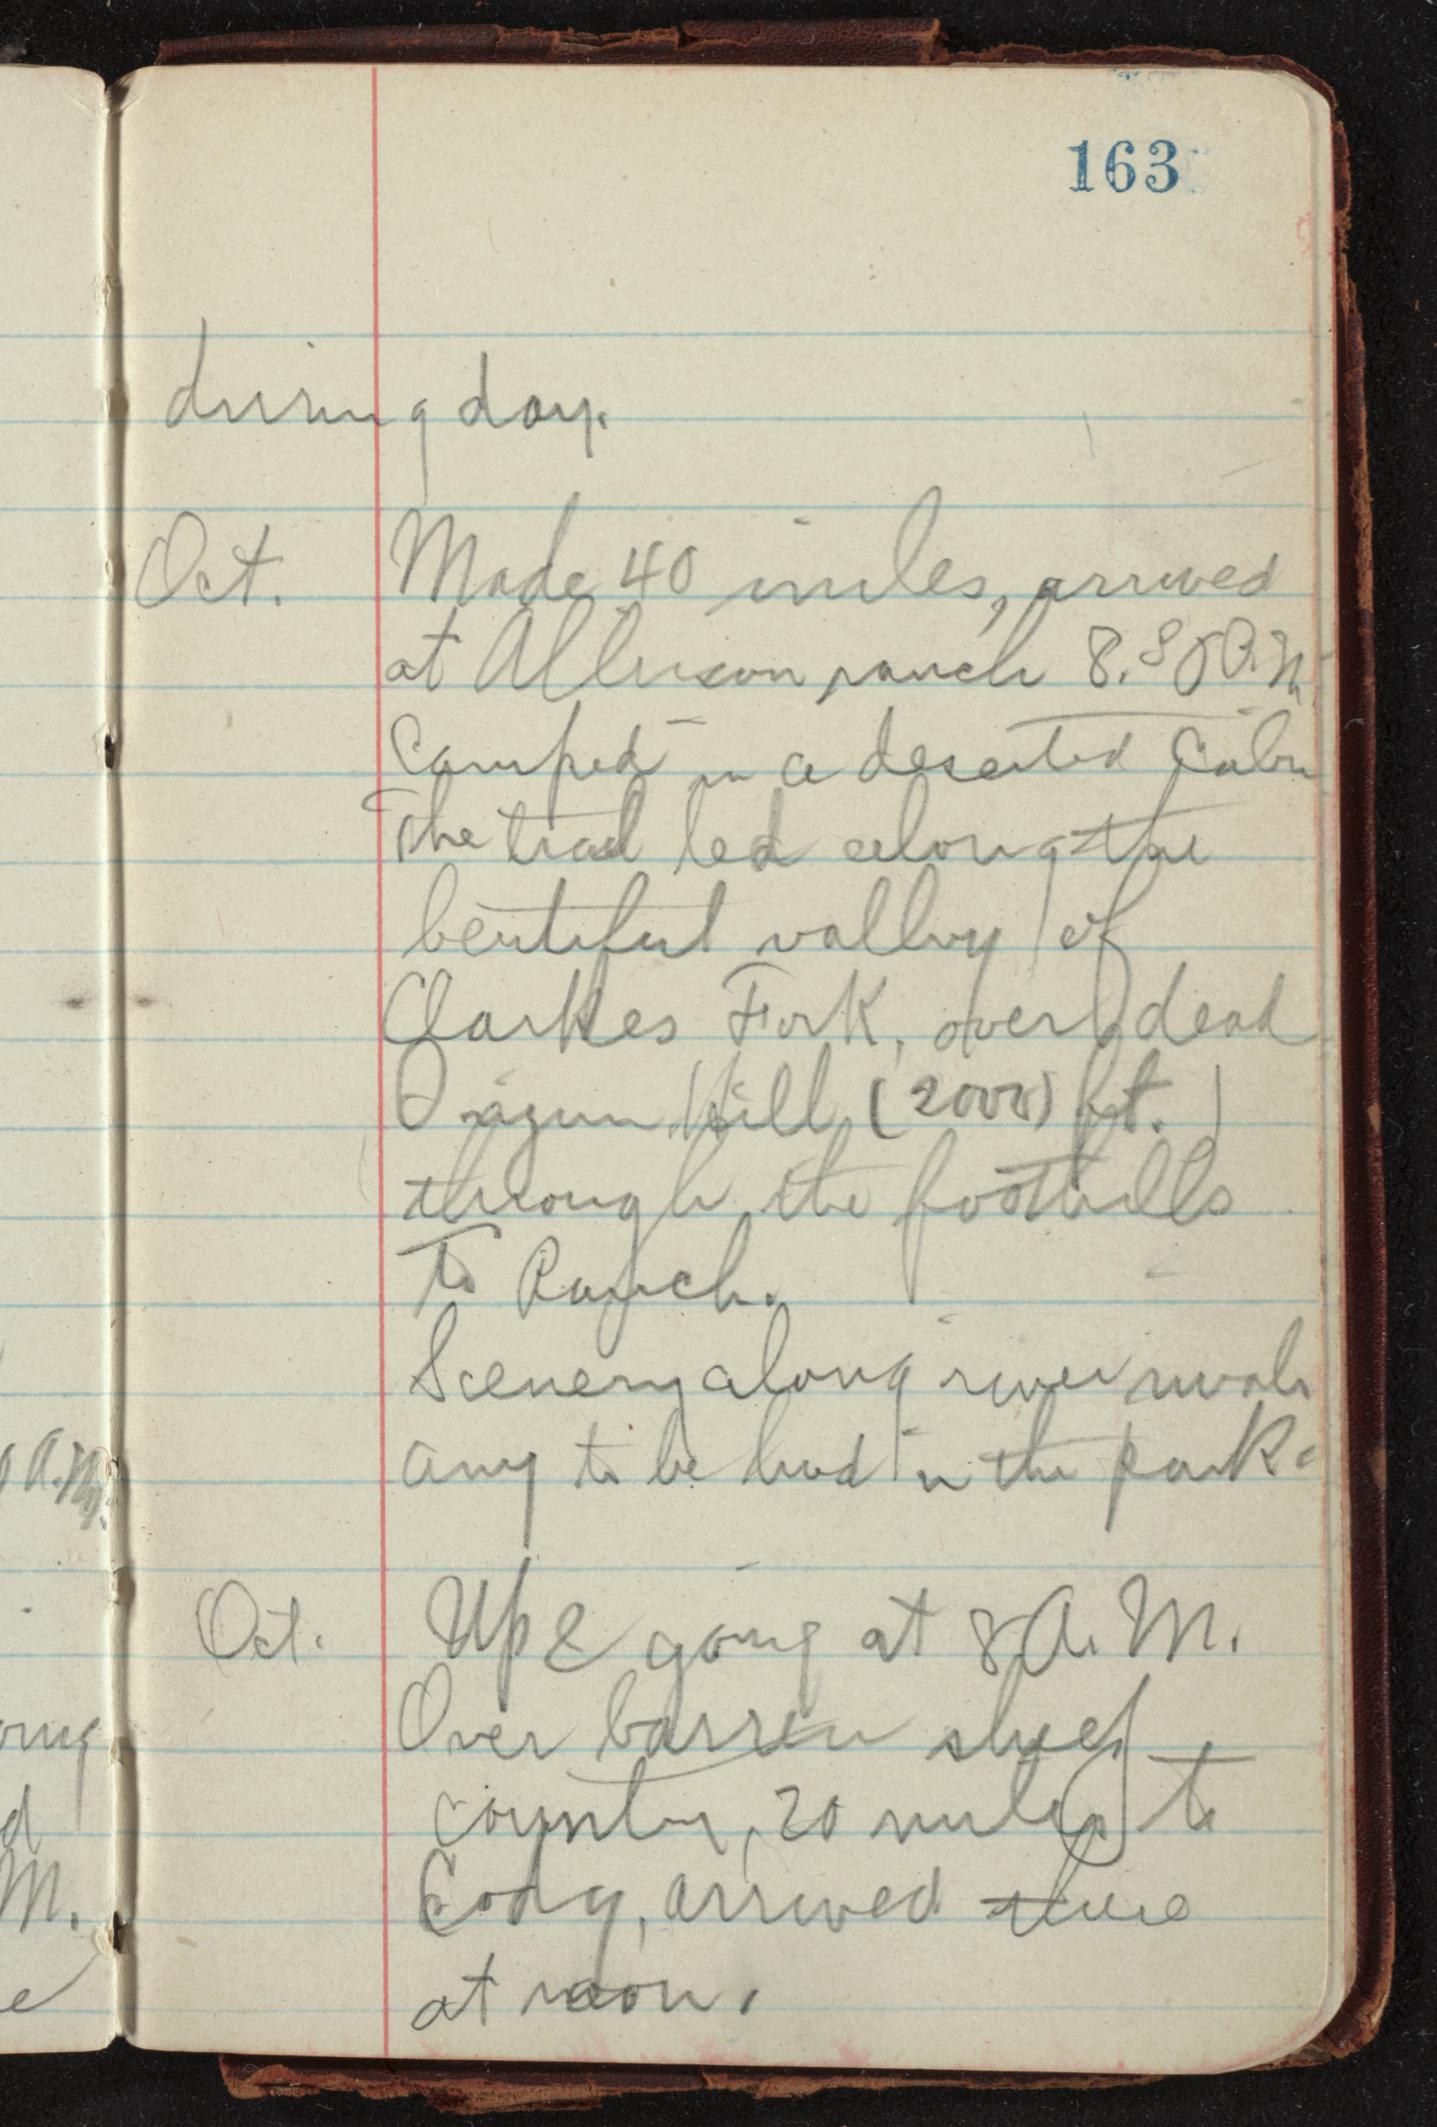 163
during day.
Oct. Made 40 miles, arrived
at Allison ranch 8. P.M
Camped in a deserted Cabin
The trail led along the
beutiful valley of
Clarkes Fork, over dead
hill (2000) ft.)
through the foothills
to Ranch.
Scenery along river rivals
any to be had in the park.
Oct. Up & going at 8 A.M.
Over barren sheep
country, 20 miles to
Cody, arrived there
at noon.
A.M.
ong
d
M.
e